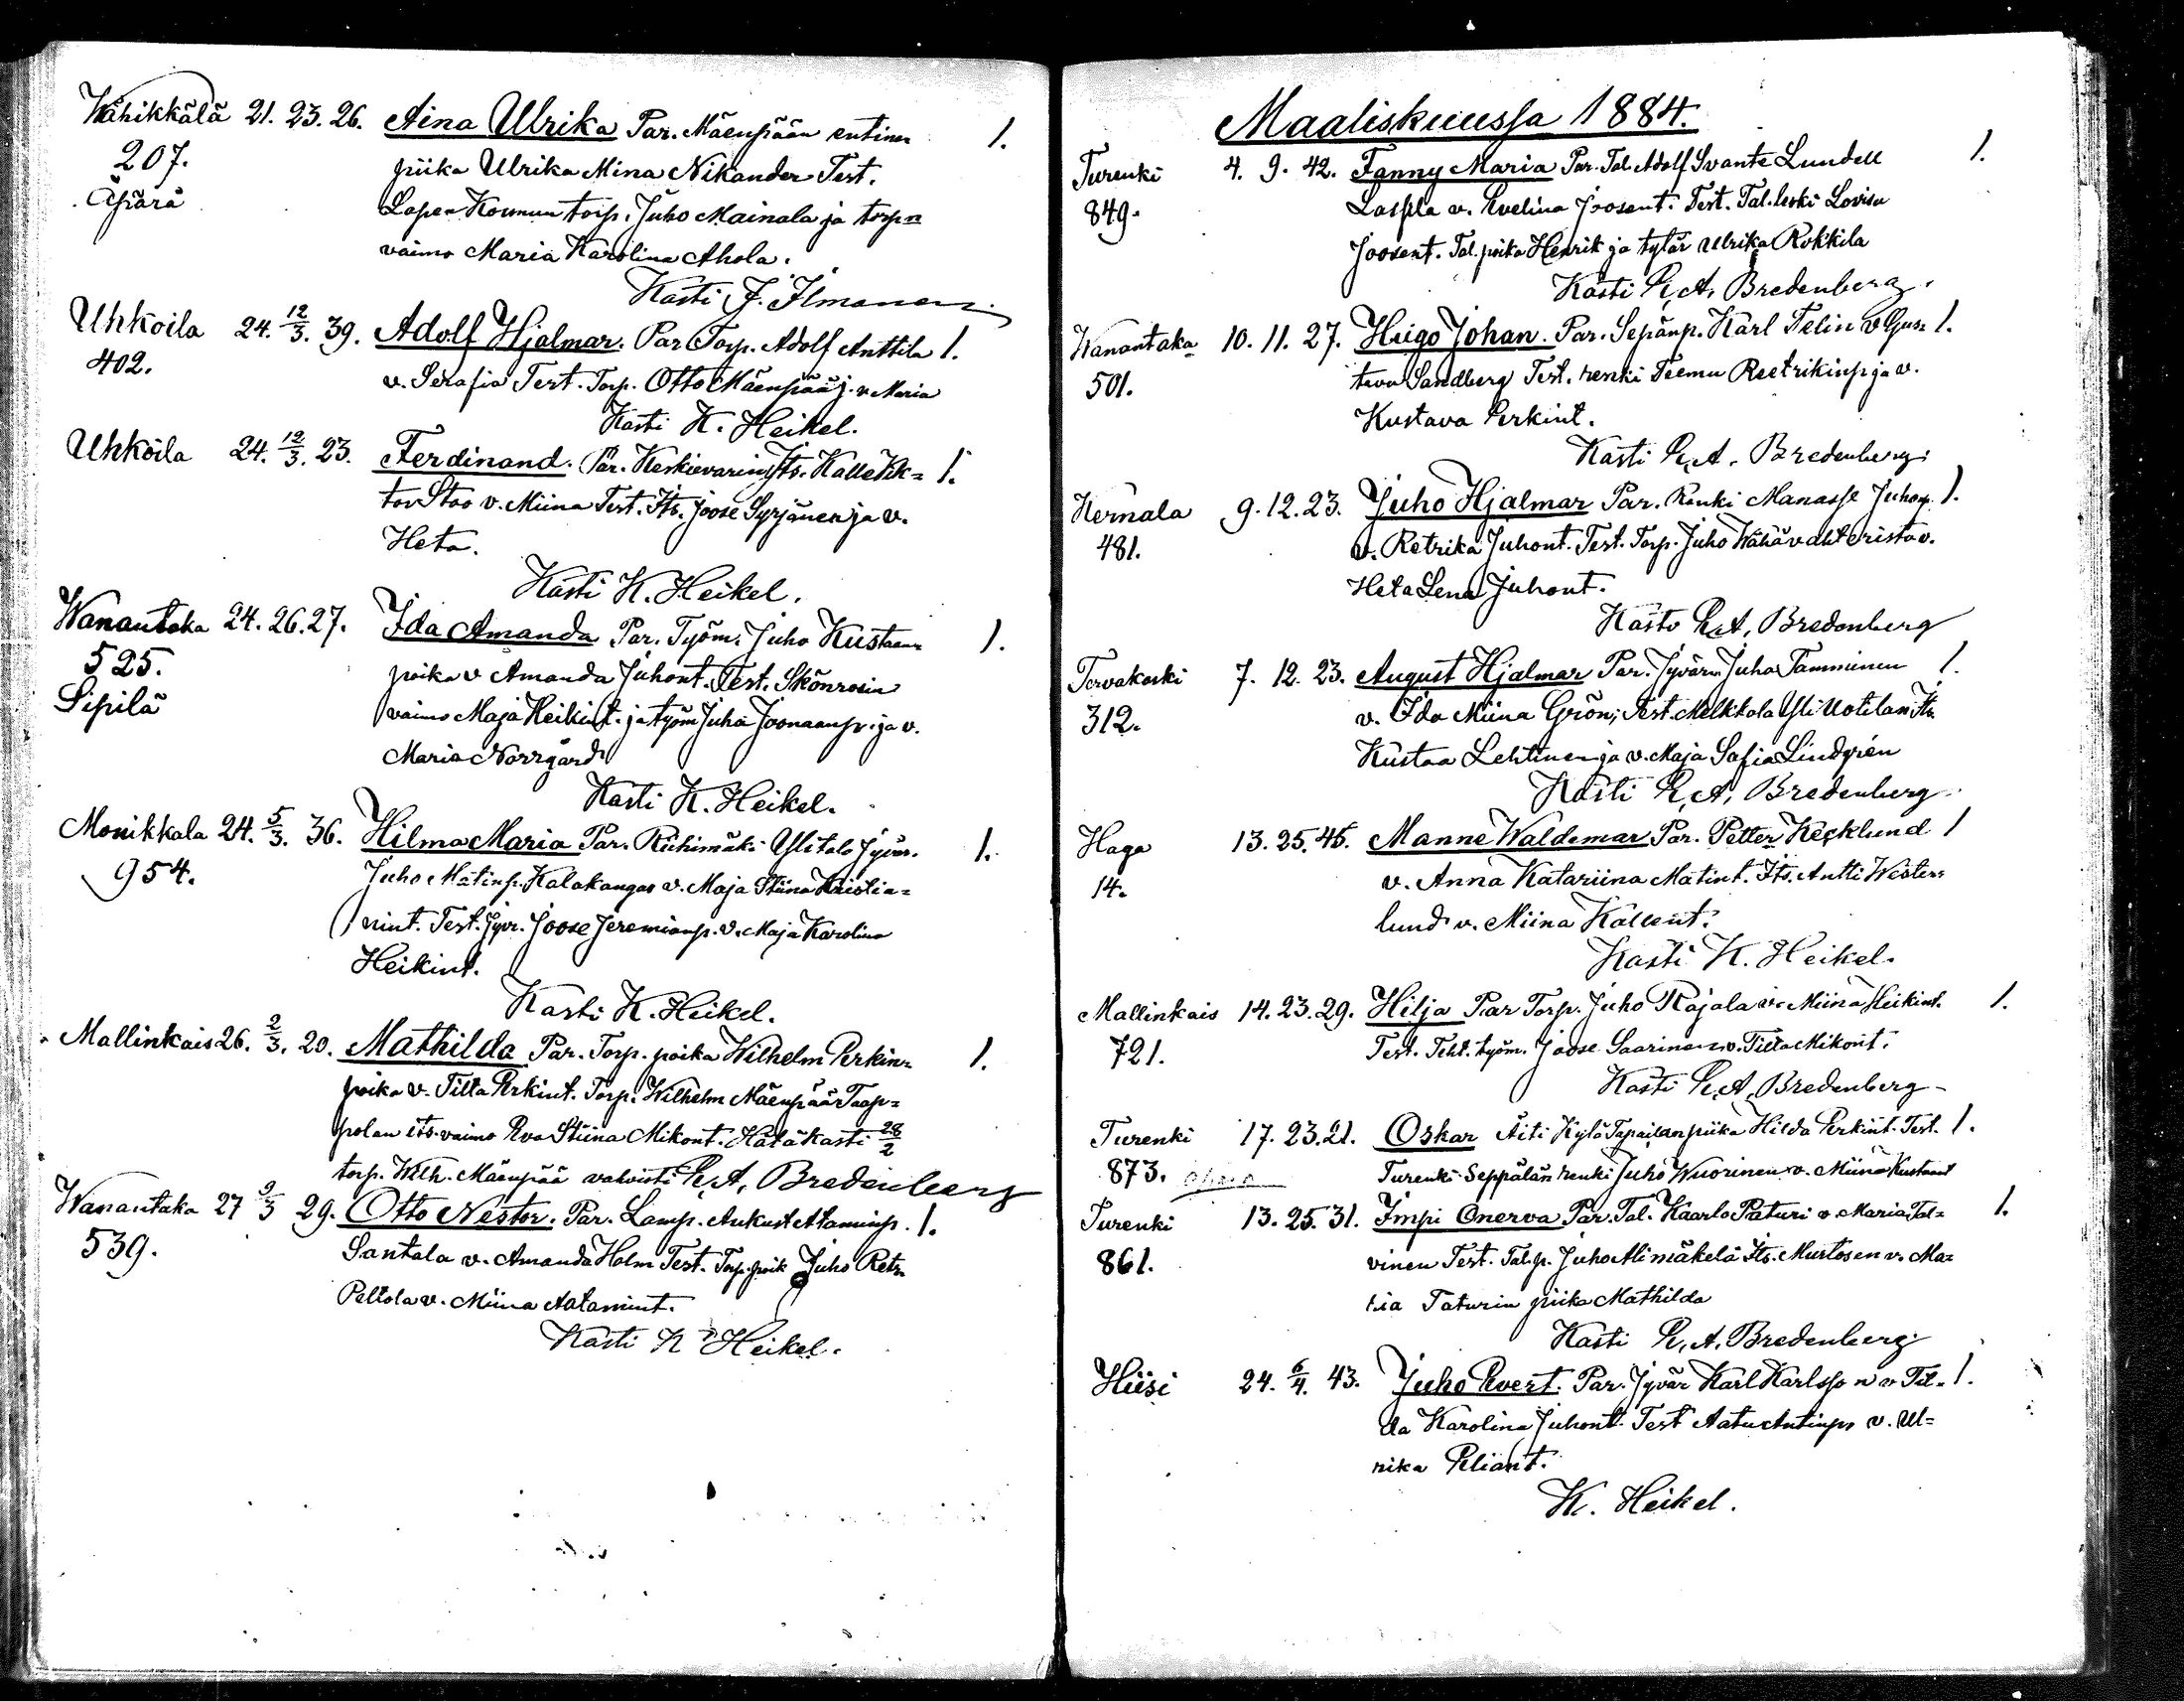 Wähikkälä 21. 23. 26. Aina Ulrika Par. Mäenpään entinen 1.
207. piika Ulrika Mina Nikander Test.
Äpärä Lopen Kounun torp. Juho Mainala ja torp.n
vaimo Maria Karolina Ahola.
Kasti J. Ilmonen
Uhkoila 24. 12/3. 39. Adolf Hjalmar. Par Torp. Adolf Anttila 1.
402. v. Serafia Test. Torp. Otto Mäenpää j. v. Maria
Kasti K. Heikel.
Uhkoila 24. 12/3. 23. Ferdinand. Par. Keskievarin Its. Kalle Vik= 1.
tor Stoo v. Miina Test. Its. Joose Syrjänen ja v.
Heta.
Kasti K. Heikel.
Wanantaka 24. 26. 27. Ida Amanda Par. Työm. Juho Kustaan= 1.
525. poika v Amanda Juhont. Test. Skönrosin
Sipilä vaimo Maja Heikint. ja työm Juha Joonaanp. ja v.
Maria Norrgård
Kasti K. Heikel.
Monikkala 24. 5/3. 36. Hilma Maria Par. Riihimäki Ylitalo Jyvär. 1.
954. Juho Matinp. Kalakangas v. Maja Stiina Kristia=
nint. Test. Jyv. Joose Jeremianp. v. Maja Karolina
Heikint.
Kasti K. Heikel.
Mallinkais 26. 2/3. 20. Mathilda Par. Torp. poika Wilhelm Erkin= 1.
poika v. Tilta Erkint. Torp. Wilhelm Mäenpää Taap=
polan its. vaimo Eva Stiina Mikont. Hätäkasti 28/2
torp. Wilh. Mäenpää vahvisti E. A. Bredenberg
Wanantaka 27 9/3 29. Otto Nestor. Par. Lamp. Aukust Ataminp. 1.
539. Santala v. Amanda Holm Test. Torp. poik Juho Retr.
Peltola v. Miina Aatamint.
Kasti K Heikel.
Maaliskuussa 1884.
Turenki 4. 9. 42. Fanny Maria Par. Tal. Adolf Svante Lundell 1.
849. Laspla v. Evelina Joosent. Test. Tal. leski Lovisa
Joosent. Tal. poika Henrik ja tytär Ulrika Rokkila
Kasti E. A. Bredenberg.
Wanantaka 10. 11. 27. Hugo Johan. Par. Sepänp. Karl Felin v Gus= 1.
501. tava Sandberg Test. renki Teemu Reetrikinp ja v.
Kustava Erkint.
Kasti E. A. Bredenberg
Kernala 9. 12. 23. Juho Hjalmar Par. Renki Manasse Juhonp. 1.
481. v. Retrika Juhont. Test. Torp. Juho Wähävahteristo v.
Heta Lena Juhont.
Kasto E. A. Bredenberg
Tervakoski 7. 12. 23. August Hjalmar Par. Jyvärm Juha Tamminen 1.
312. v. Ida Miina Grön; Test. Melkkola Yli Uotilan Its.
Kustaa Lehtinen ja v. Maja Safia Lindgrén
Kasti E. A. Bredenberg
Haga 13. 25. 45. Manne Waldemar Par. Petter Kecklund 1
14. v. Anna Katariina Matint. Its. Antti Wester=
lund v. Miina Kallent.
Kasti K. Heikel.
Mallinkais 14. 23. 29. Hilja Par Torp. Juho Rajala v. Miina Heikint. 1.
721. Test. Teht. työm. Joose Saarinen v. Tilta Mikont.
Kasti E. A. Bredenberg
Turenki 17. 23. 21. Oskar Äiti Kylä Tapailan piika Hilda Erkint. Test. 1.
873. äpärä Turenki Seppälän renki Juho Wuorinen v. Miina Kustaant
Turenki 13. 25. 31. Impi Onerva Par. Tal. Kaarlo Paturi v. Maria Tal= 1.
861. vinen Test. Tal.p. Juho Alimäkelä Its. Murtosen v. Ma=
ria Paturin piika Mathilda
Kasti E. A. Bredenberg
Hiisi 24. 6/4. 43. Juho Evert. Par. Jyvär Karl Karlsson v Til= 1.
da Karolina Juhont. Test Aatu Antinpo v. Ul=
rika Eliant.
K. Heikel.